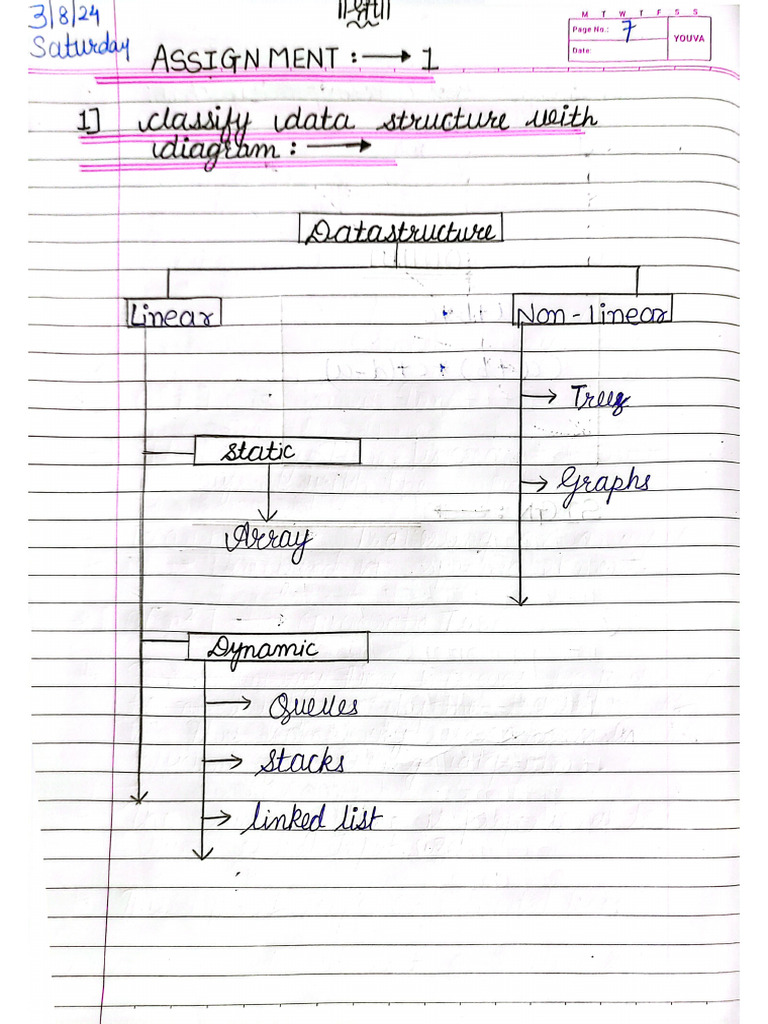 3/8/24
॥ श्री ॥
M T W T F S S
Page No.: 7
Date:
YOUVA
Saturday
ASSIGNMENT : → 1
1] classify data structure with
diagram : →
Datastructure
Linear
Non-linear
→ Trees
Static
→ Graphs
Array
Dynamic
→ Queues
→ Stacks
→ linked list